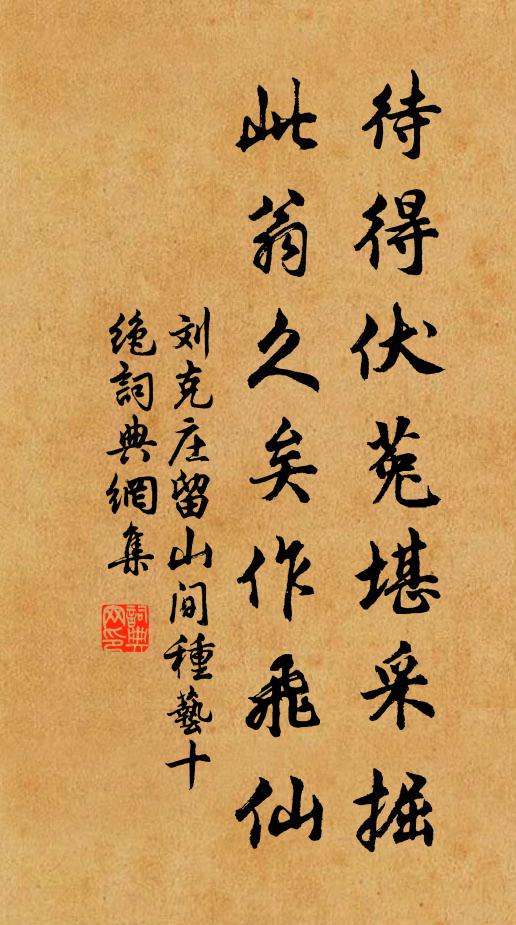 待得伏菟堪采掘
此翁久矣作飛仙
刘克庄留山间種藝十
绝詞典網集
詞典網印